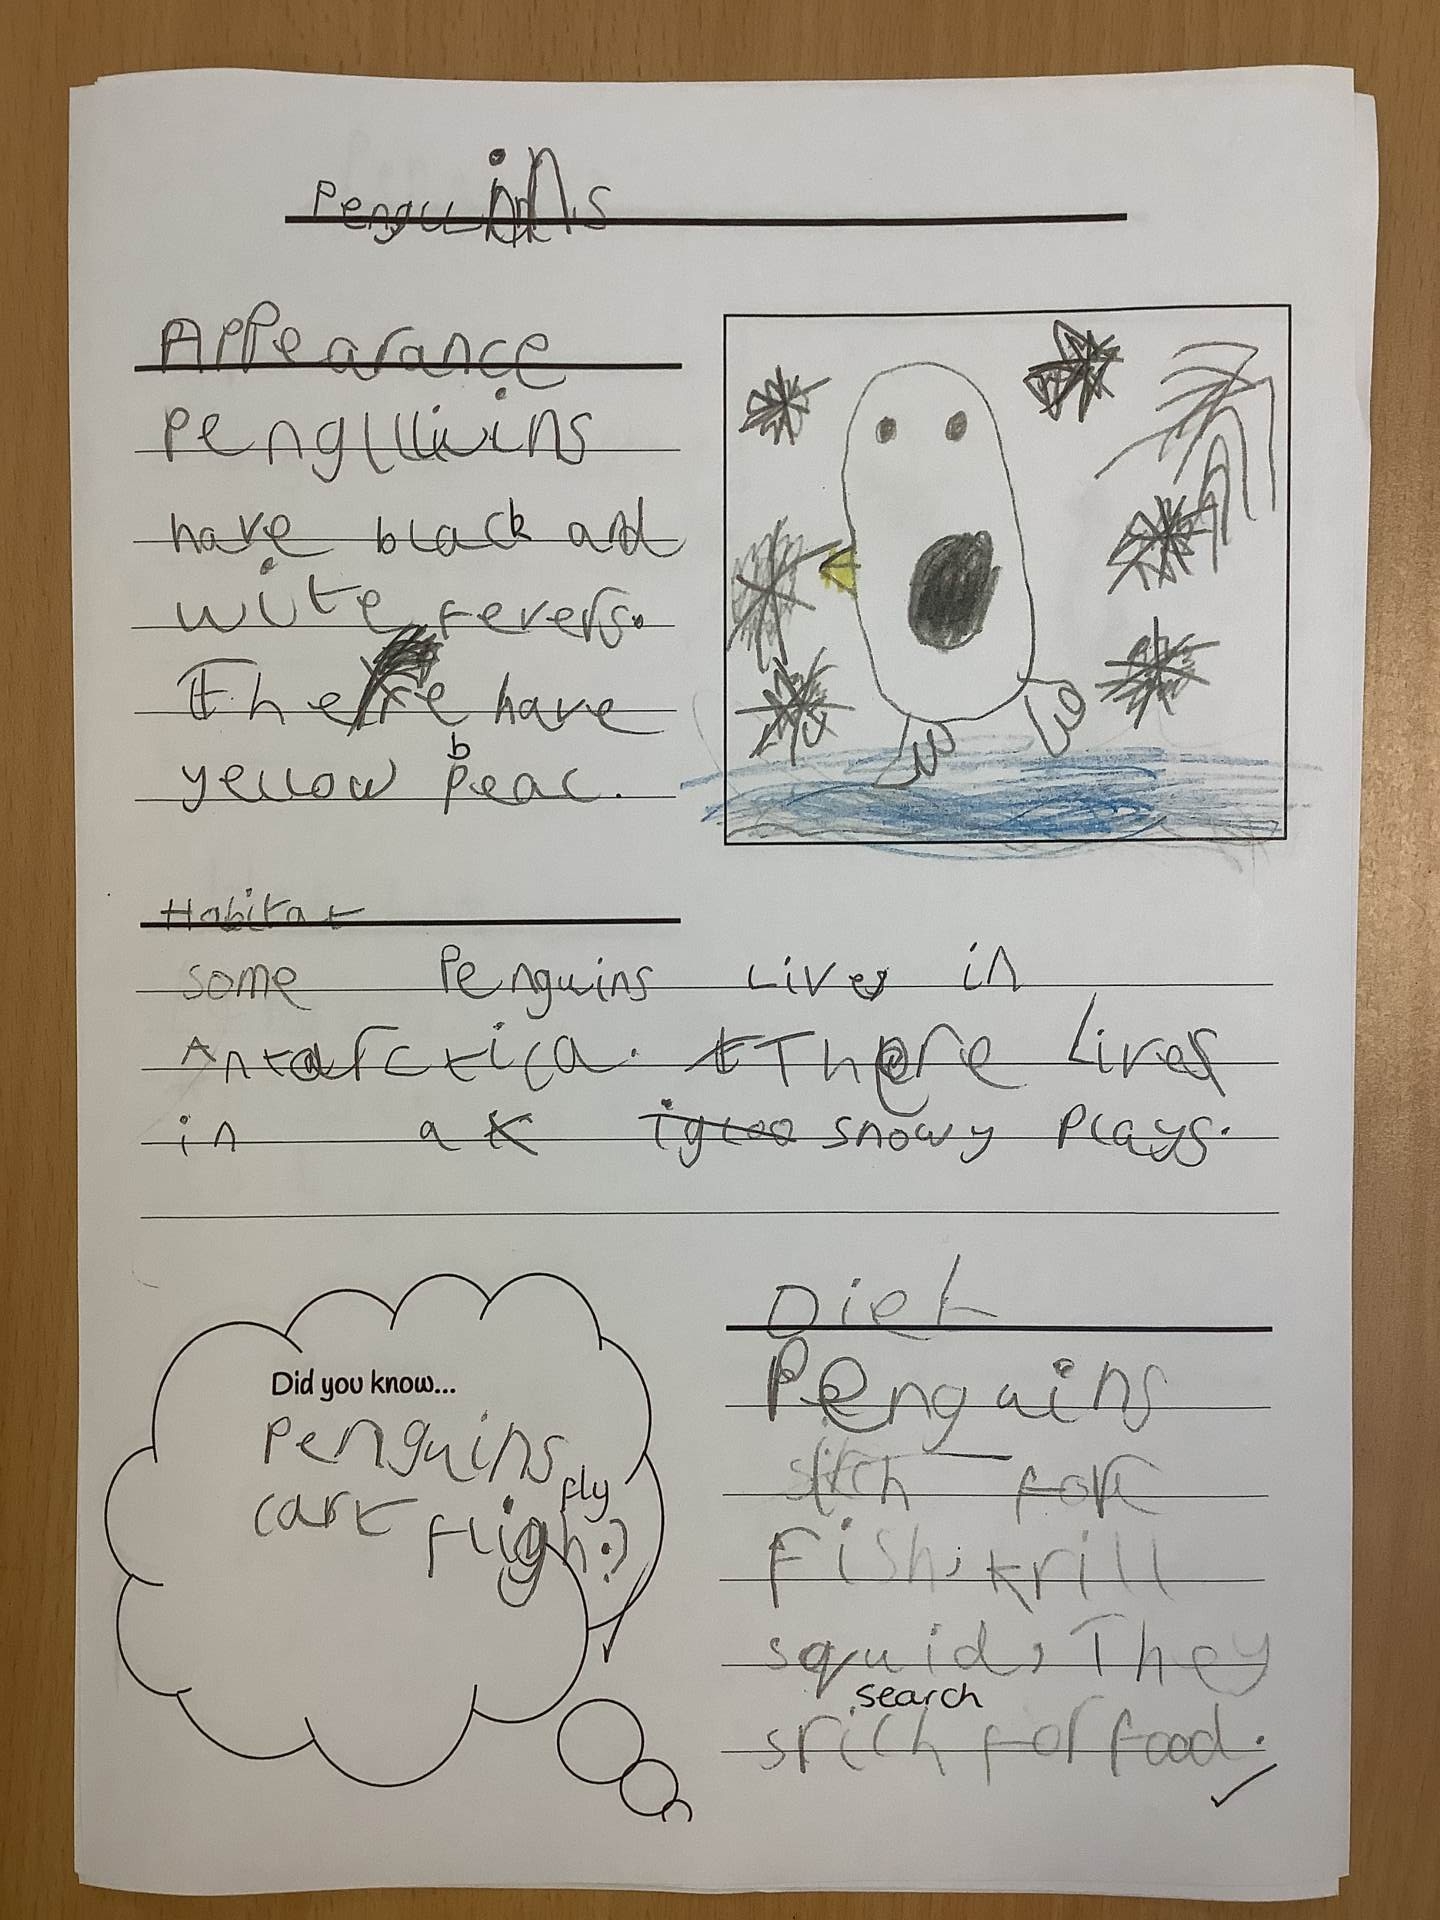 Penguins
Appearance
Penguiins
have black and
wite fevers.
There have
b
yellow peac.
Habitat
some Penguins Lives in
Antarctica. There Lives
in a igloo snowy Plays.
Did you know...
Penguins
fly
cant fligh?
Diet
Penguins
sirch for
Fish, krill
squid, They
search
srich for food.